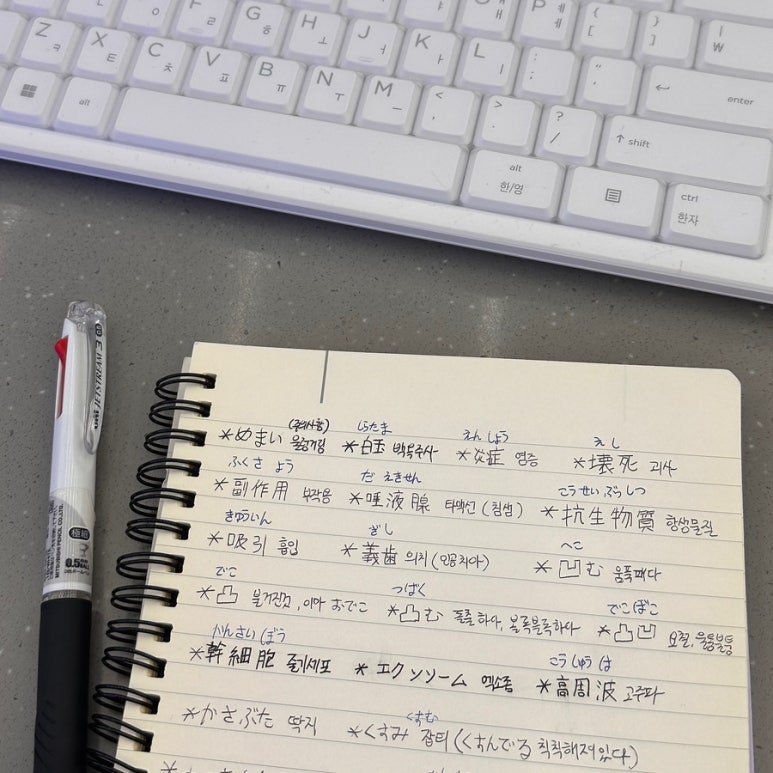 Z ㅋ X ㅌ C ㅊ V ㅍ B ㅠ N ㅜ M ㅡ < , > . ? /
G ㅎ H ㅗ J ㅓ K ㅏ L ㅣ : ; " '
P ㅔ ㅖ { [ } ] | ₩
enter
↑ shift
alt
alt 한/영
ctrl 한자
JETSTREAM
uni
極細
0.5
MITSUBISHI PENCIL CO.,LTD.
(주의사항) しらたま えんしょう えし
*めまい 울렁거림 *白玉 백옥주사 *炎症 염증 *壊死 괴사
ふくさよう だえきせん こうせいぶっしつ
*副作用 부작용 *唾液腺 타액선 (침샘) *抗生物質 항생물질
きゅういん ぎし へこ
*吸引 흡입 *義歯 의치 (인공치아) *凹む 움푹패다
でこ つばく でこぼこ
*凸 불거진것, 이마 おでこ *凸む 돌출하다, 볼록볼록하다 *凸凹 요철, 울퉁불퉁
かんさいぼう こうしゅうは
*幹細胞 줄기세포 *エクソソーム 엑소좀 *高周波 고주파
くすむ
*かさぶた 딱지 *くすみ 잡티 (くすんでる 칙칙해져있다)